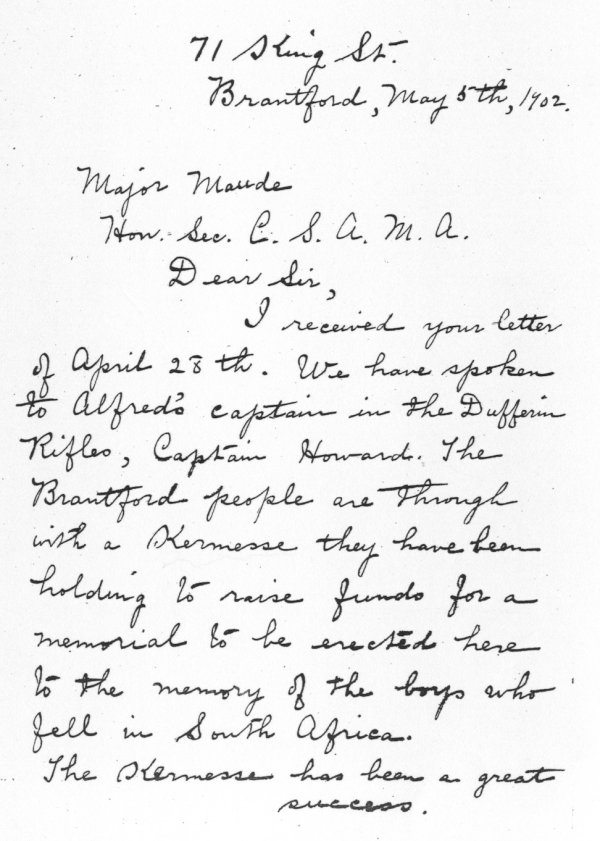 71 King St.
Brantford, May 5th, 1902.
Major Maude
Hon. Sec. C. S. A. M. A.
Dear Sir,
I received your letter
of April 28th. We have spoken
to Alfred's captain in the Dufferin
Rifles, Captain Howard. The
Brantford people are through
with a Kermesse they have been
holding to raise funds for a
memorial to be erected here
to the memory of the boys who
fell in South Africa.
The Kermesse has been a great
success.